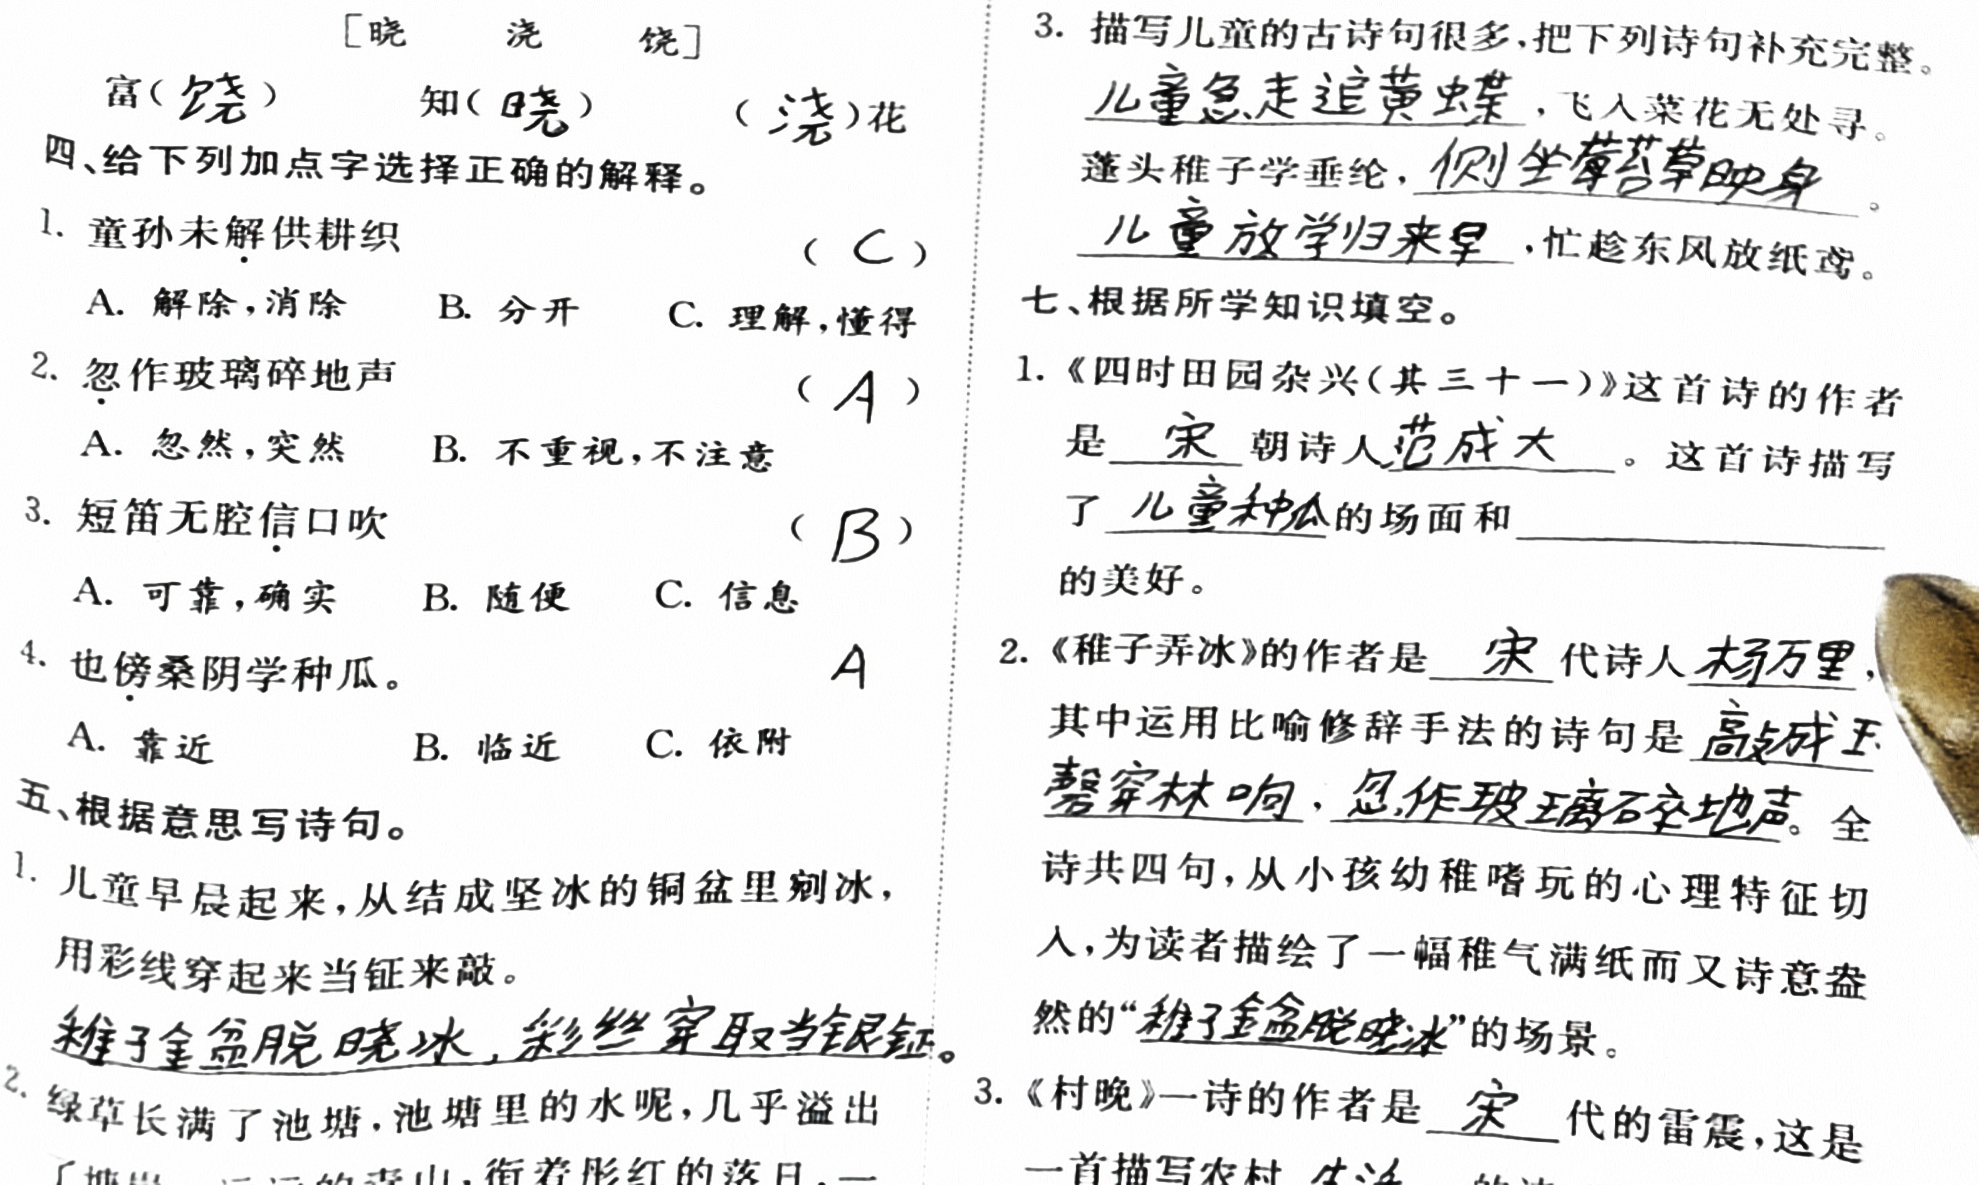 [晓 浇 饶]
富(饶) 知(晓) (浇)花
四、给下列加点字选择正确的解释。
1. 童孙未解供耕织 (C)
A. 解除,消除 B. 分开 C. 理解,懂得
2. 忽作玻璃碎地声 (A)
A. 忽然,突然 B. 不重视,不注意
3. 短笛无腔信口吹 (B)
A. 可靠,确实 B. 随便 C. 信息
4. 也傍桑阴学种瓜。 A
A. 靠近 B. 临近 C. 依附
五、根据意思写诗句。
1. 儿童早晨起来,从结成坚冰的铜盆里剜冰,
用彩线穿起来当钲来敲。
稚子金盆脱晓冰,彩丝穿取当银钲。
2. 绿草长满了池塘,池塘里的水呢,几乎溢出
了塘岸。远远的青山,衔着彤红的落日,一
3. 描写儿童的古诗句很多,把下列诗句补充完整。
儿童急走追黄蝶,飞入菜花无处寻。
蓬头稚子学垂纶,侧坐莓苔草映身。
儿童放学归来早,忙趁东风放纸鸢。
七、根据所学知识填空。
1.《四时田园杂兴(其三十一)》这首诗的作者
是 宋 朝诗人范成大。这首诗描写
了 儿童种瓜的场面和
的美好。
2.《稚子弄冰》的作者是 宋 代诗人杨万里,
其中运用比喻修辞手法的诗句是 敲成玉
磬穿林响,忽作玻璃碎地声。全
诗共四句,从小孩幼稚嗜玩的心理特征切
入,为读者描绘了一幅稚气满纸而又诗意盎
然的“稚子金盆脱晓冰”的场景。
3.《村晚》一诗的作者是 宋 代的雷震,这是
一首描写农村 生活 的